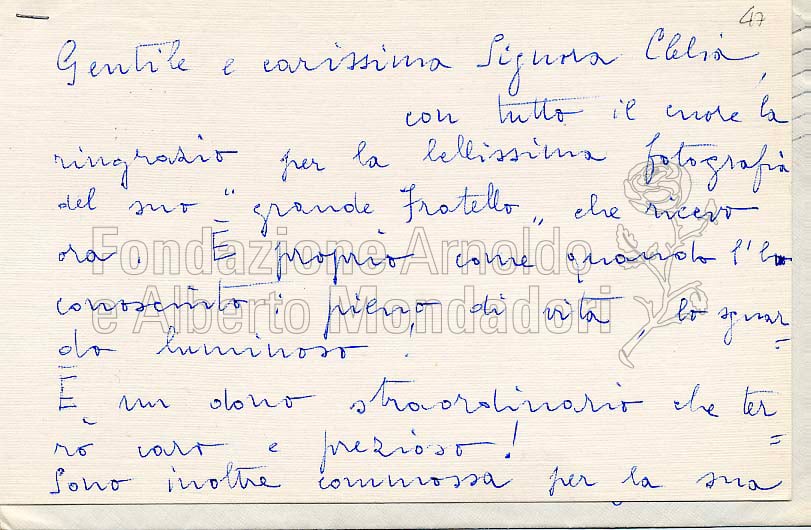 47
Gentile e carissima Signora Clelia,
con tutto il cuore la
ringrazio per la bellissima fotografia
del suo "grande Fratello" che ricevo
ora. È proprio come quando l'ho
conosciuto: pieno di vita, lo sguar=
do luminoso!
È un dono straordinario che ter=
rò caro e prezioso!
Sono inoltre commossa per la sua
Fondazione Arnoldo
e Alberto Mondadori